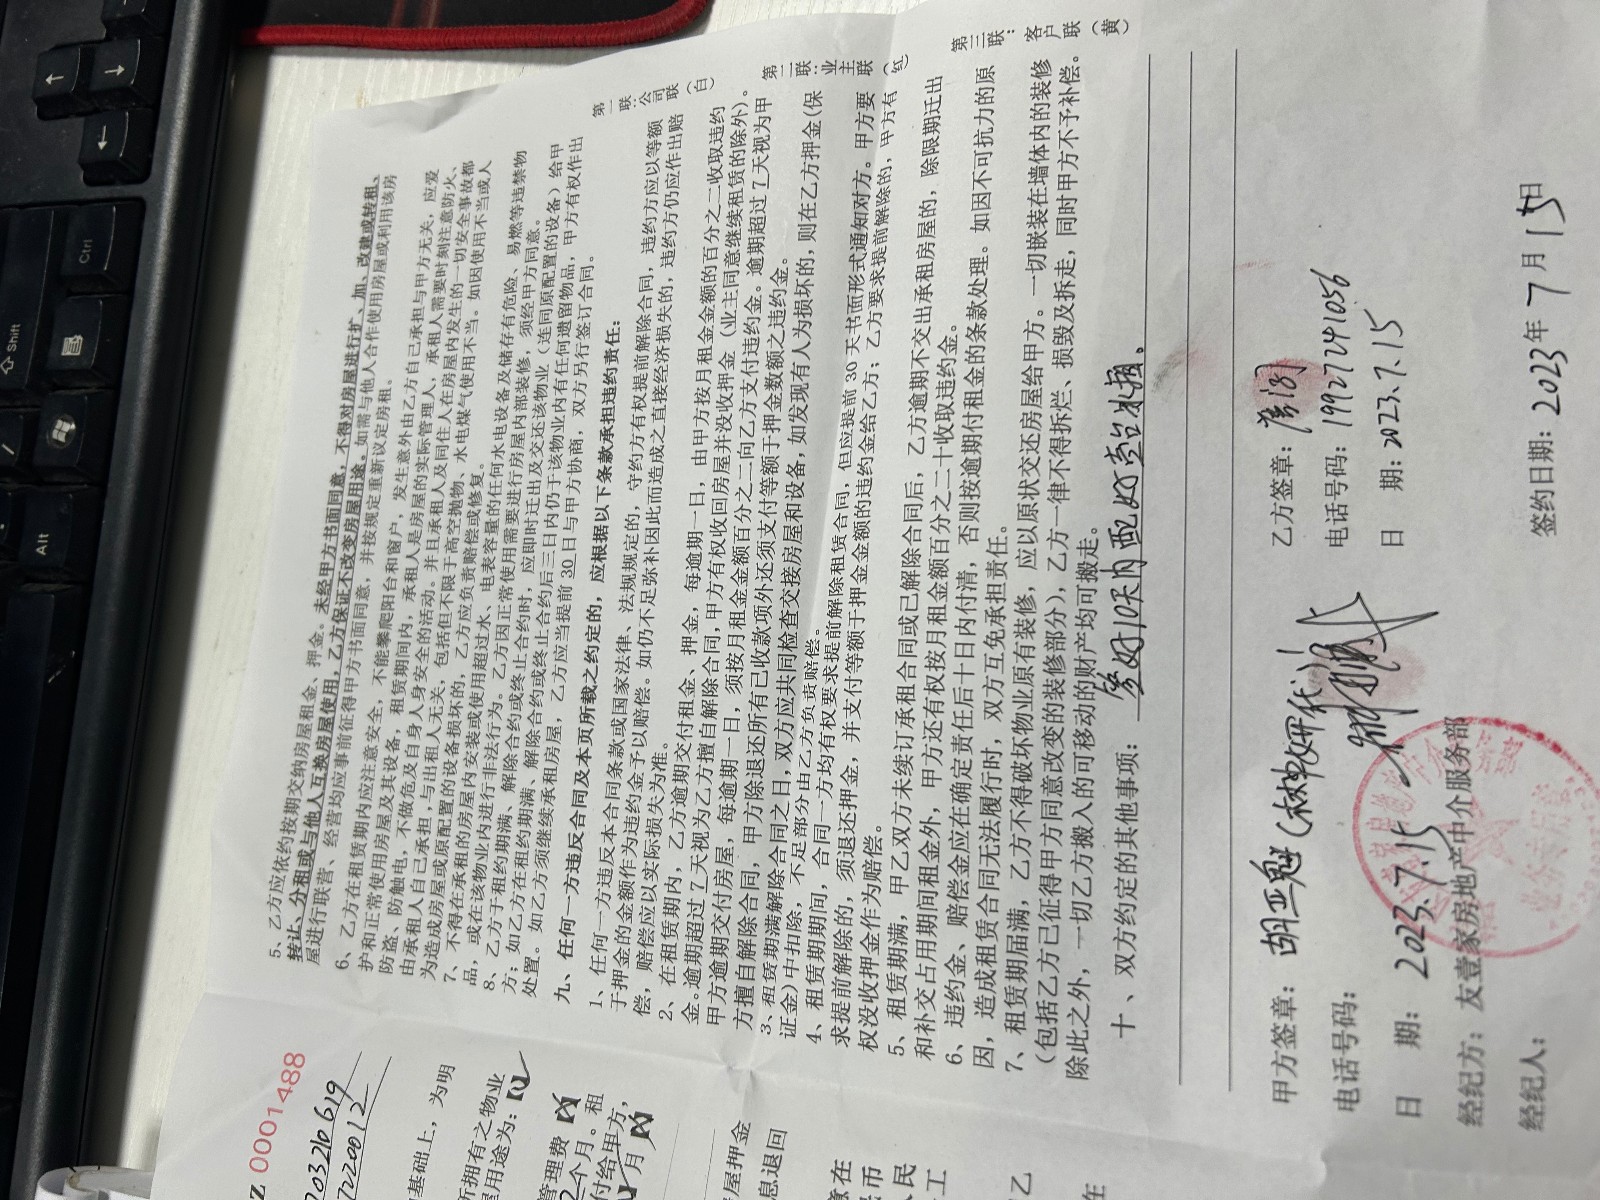 5、乙方应依约按期交纳房屋租金、押金。未经甲方书面同意,不得对房屋进行扩、加、改建或转租、
转让、分租或与他人互换房屋使用,乙方保证不改变房屋用途。如需与他人合作使用房屋或利用该房
屋进行联营、经营均应事前征得甲方书面同意,并按规定重新议定房租。
6、乙方在租赁期内应注意安全,不能攀爬阳台和窗户,发生意外由乙方自己承担与甲方无关,应爱
护和正常使用房屋及其设备,租赁期间内,承租人是房屋的实际管理人,承租人需要时刻注意防火、
防盗、防触电,不做危及自身人身安全的活动。并且承租人及同住人在房屋内发生的一切安全事故都
由承租人自己承担,与出租人无关,包括但不限于高空抛物、水电煤气使用不当。如因使用不当或人
为造成房屋或原配置的设备损坏的,乙方应负责赔偿或修复。
7、不得在承租的房屋内安装或使用超过水、电表容量的任何水电设备及储存有危险、易燃等违禁物
品,或在该物业内进行非法行为。乙方因正常使用需要进行房屋内部装修,须经甲方同意。
8、乙方于租约期满、解除合约或终止合约时,应即时迁出及交还该物业(连同原配置的设备)给甲
方;如乙方在租约期满、解除合约或终止合约后三日内仍于该物业内有任何遗留物品,甲方有权作出
处置。如乙方须继续承租房屋,乙方应当提前30日与甲方协商,双方另行签订合同。
九、任何一方违反合同及本页所载之约定的,应根据以下条款承担违约责任:
1、任何一方违反本合同条款或国家法律、法规规定的,守约方有权提前解除合同,违约方应以等额
于押金的金额作为违约金予以赔偿。如仍不足弥补因此而造成之直接经济损失的,违约方仍应作出赔
偿,赔偿应以实际损失为准。
2、在租赁期内,乙方逾期交付租金、押金,每逾期一日,由甲方按月租金金额的百分之二收取违约
金。逾期超过7天视为乙方擅自解除合同,甲方有权收回房屋并没收押金(业主同意继续租赁的除外)。
甲方逾期交付房屋,每逾期一日,须按月租金金额百分之二向乙方支付违约金。逾期超过7天视为甲
方擅自解除合同,甲方除退还所有已收款项外还须支付等额于押金数额之违约金。
3、租赁期满解除合同之日,双方应共同检查交接房屋和设备,如发现有人为损坏的,则在乙方押金(保
证金)中扣除,不足部分由乙方负责赔偿。
4、租赁期期间,合同一方均有权要求提前解除租赁合同,但应提前30天书面形式通知对方。甲方要
求提前解除的,须退还押金,并支付等额于押金金额的违约金给乙方;乙方要求提前解除的,甲方有
权没收押金作为赔偿。
5、租赁期满,甲乙双方未续订承租合同或已解除合同后,乙方逾期不交出承租房屋的,除限期迁出
和补交占用期间租金外,甲方还有权按月租金额百分之二十收取违约金。
6、违约金、赔偿金应在确定责任后十日内付清,否则按逾期付租金的条款处理。如因不可抗力的原
因,造成租赁合同无法履行时,双方互免承担责任。
7、租赁期届满,乙方不得破坏物业原有装修,应以原状交还房屋给甲方。一切嵌装在墙体内的装修
(包括乙方已征得甲方同意改变的装修部分),乙方一律不得拆烂、损毁及拆走,同时甲方不予补偿。
除此之外,一切乙方搬入的可移动的财产均可搬走。
十、双方约定的其他事项:
签好10天内配好
第一联:公司联(白)
第二联:业主联(红)
第三联:客户联(黄)
甲方签章:胡亚魁
电话号码:
日 期:2023.7.15
经纪方:友壹家房地产中介服务部
经纪人:
乙方签章:
电话号码:19927241056
日 期:2023.7.15
签约日期:2023年7月15日
Z 0001488
基础上,为明
所拥有之物业
用途为:
管理费
2个月。租
付给甲方,
月
屋押金
息退回
意在
民
工
乙
在
Shift
Ctrl
Alt